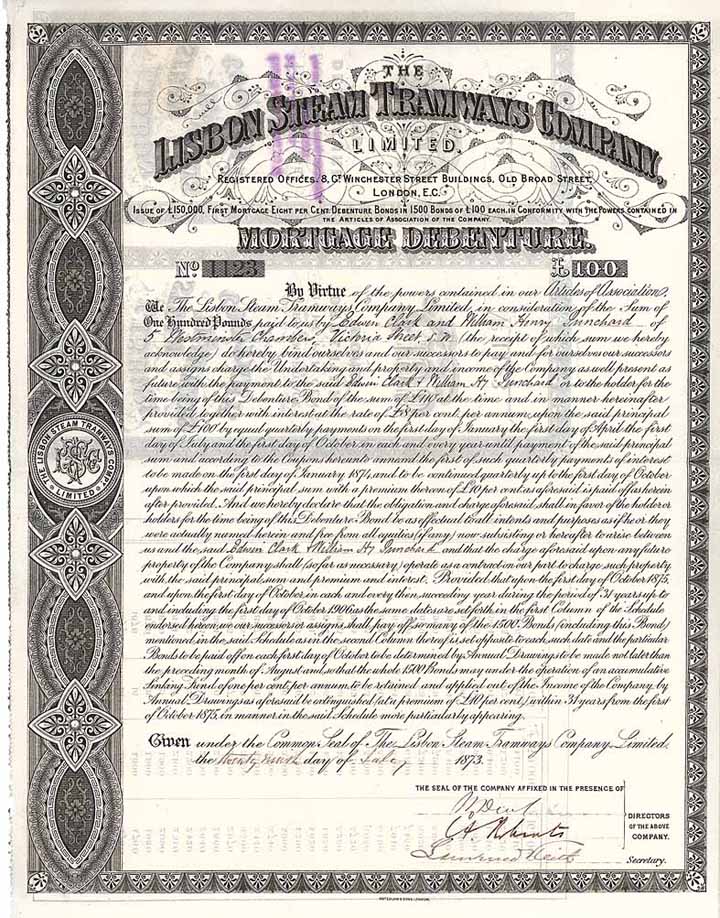 THE
LISBON STEAM TRAMWAYS COMPANY,
LIMITED.
REGISTERED OFFICES, 8, GT WINCHESTER STREET BUILDINGS, OLD BROAD STREET,
LONDON, E.C.
ISSUE OF £150,000, FIRST MORTGAGE EIGHT PER CENT. DEBENTURE BONDS IN 1500 BONDS OF £100 EACH, IN CONFORMITY WITH THE POWERS CONTAINED IN
THE ARTICLES OF ASSOCIATION OF THE COMPANY.
MORTGAGE DEBENTURE.
No 1123 £100
By Virtue of the powers contained in our Articles of Association,
We The Lisbon Steam Tramways Company Limited, in consideration of the Sum of
One Hundred Pounds paid to us by Edwin Clark and William Henry Punchard of
5 Westminster Chambers, Victoria Street, S.W. (the receipt of which sum we hereby
acknowledge) do hereby bind ourselves and our successors to pay and for ourselves our successors
and assigns charge the Undertaking and property and income of the Company as well present as
future with the payment to the said Edwin Clark & William Hy Punchard or to the holder for the
time being of this Debenture Bond of the sum of £110 at the time and in manner hereinafter
provided together with interest at the rate of £8 per cent. per annum, upon the said principal
sum of £100 by equal quarterly payments on the first day of January the first day of April the first
day of July and the first day of October in each and every year until payment of the said principal
sum and according to the Coupons hereunto annexed the first of such quarterly payments of interest
to be made on the first day of January 1874, and to be continued quarterly up to the first day of October
upon which the said principal sum with a premium thereon of £10 per cent as aforesaid is paid off as herein
after provided. And we hereby declare that the obligation and charge aforesaid, shall in favor of the holder or
holders for the time being of this Debenture Bond be as effectual to all intents and purposes as if he or they
were actually named herein and free from all equities (if any) now subsisting or hereafter to arise between
us and the said Edwin Clark William Hy Punchard and that the charge aforesaid upon any future
property of the Company shall (so far as necessary) operate as a contract on our part to charge such property
with the said principal sum and premium and interest. Provided that upon the first day of October 1875,
and upon the first day of October in each and every then succeeding year during the period of 31 years up to
and including the first day of October 1906 as the same dates are set forth in the first Column of the Schedule
endorsed hereon we our successors or assigns shall pay off so many of the 1500 Bonds (including this Bond)
mentioned in the said Schedule as in the second Column thereof is set opposite to each such date and the particular
Bonds to be paid off on each first day of October to be determined by Annual Drawings to be made not later than
the preceding month of August and so that the whole 1500 Bonds may under the operation of an accumulative
Sinking Fund of one per cent, per annum, to be retained and applied out of the Income of the Company by
Annual Drawings as aforesaid be extinguished (at a premium of £10 per cent.) within 31 years from the first
of October 1875, in manner in the said Schedule more particularly appearing.
Given under the Common Seal of The Lisbon Steam Tramways Company Limited,
the day of July 1873.
THE SEAL OF THE COMPANY AFFIXED IN THE PRESENCE OF
DIRECTORS
OF THE ABOVE
COMPANY.
Secretary.
THE LISBON STEAM TRAMWAYS COMPY
LIMITED